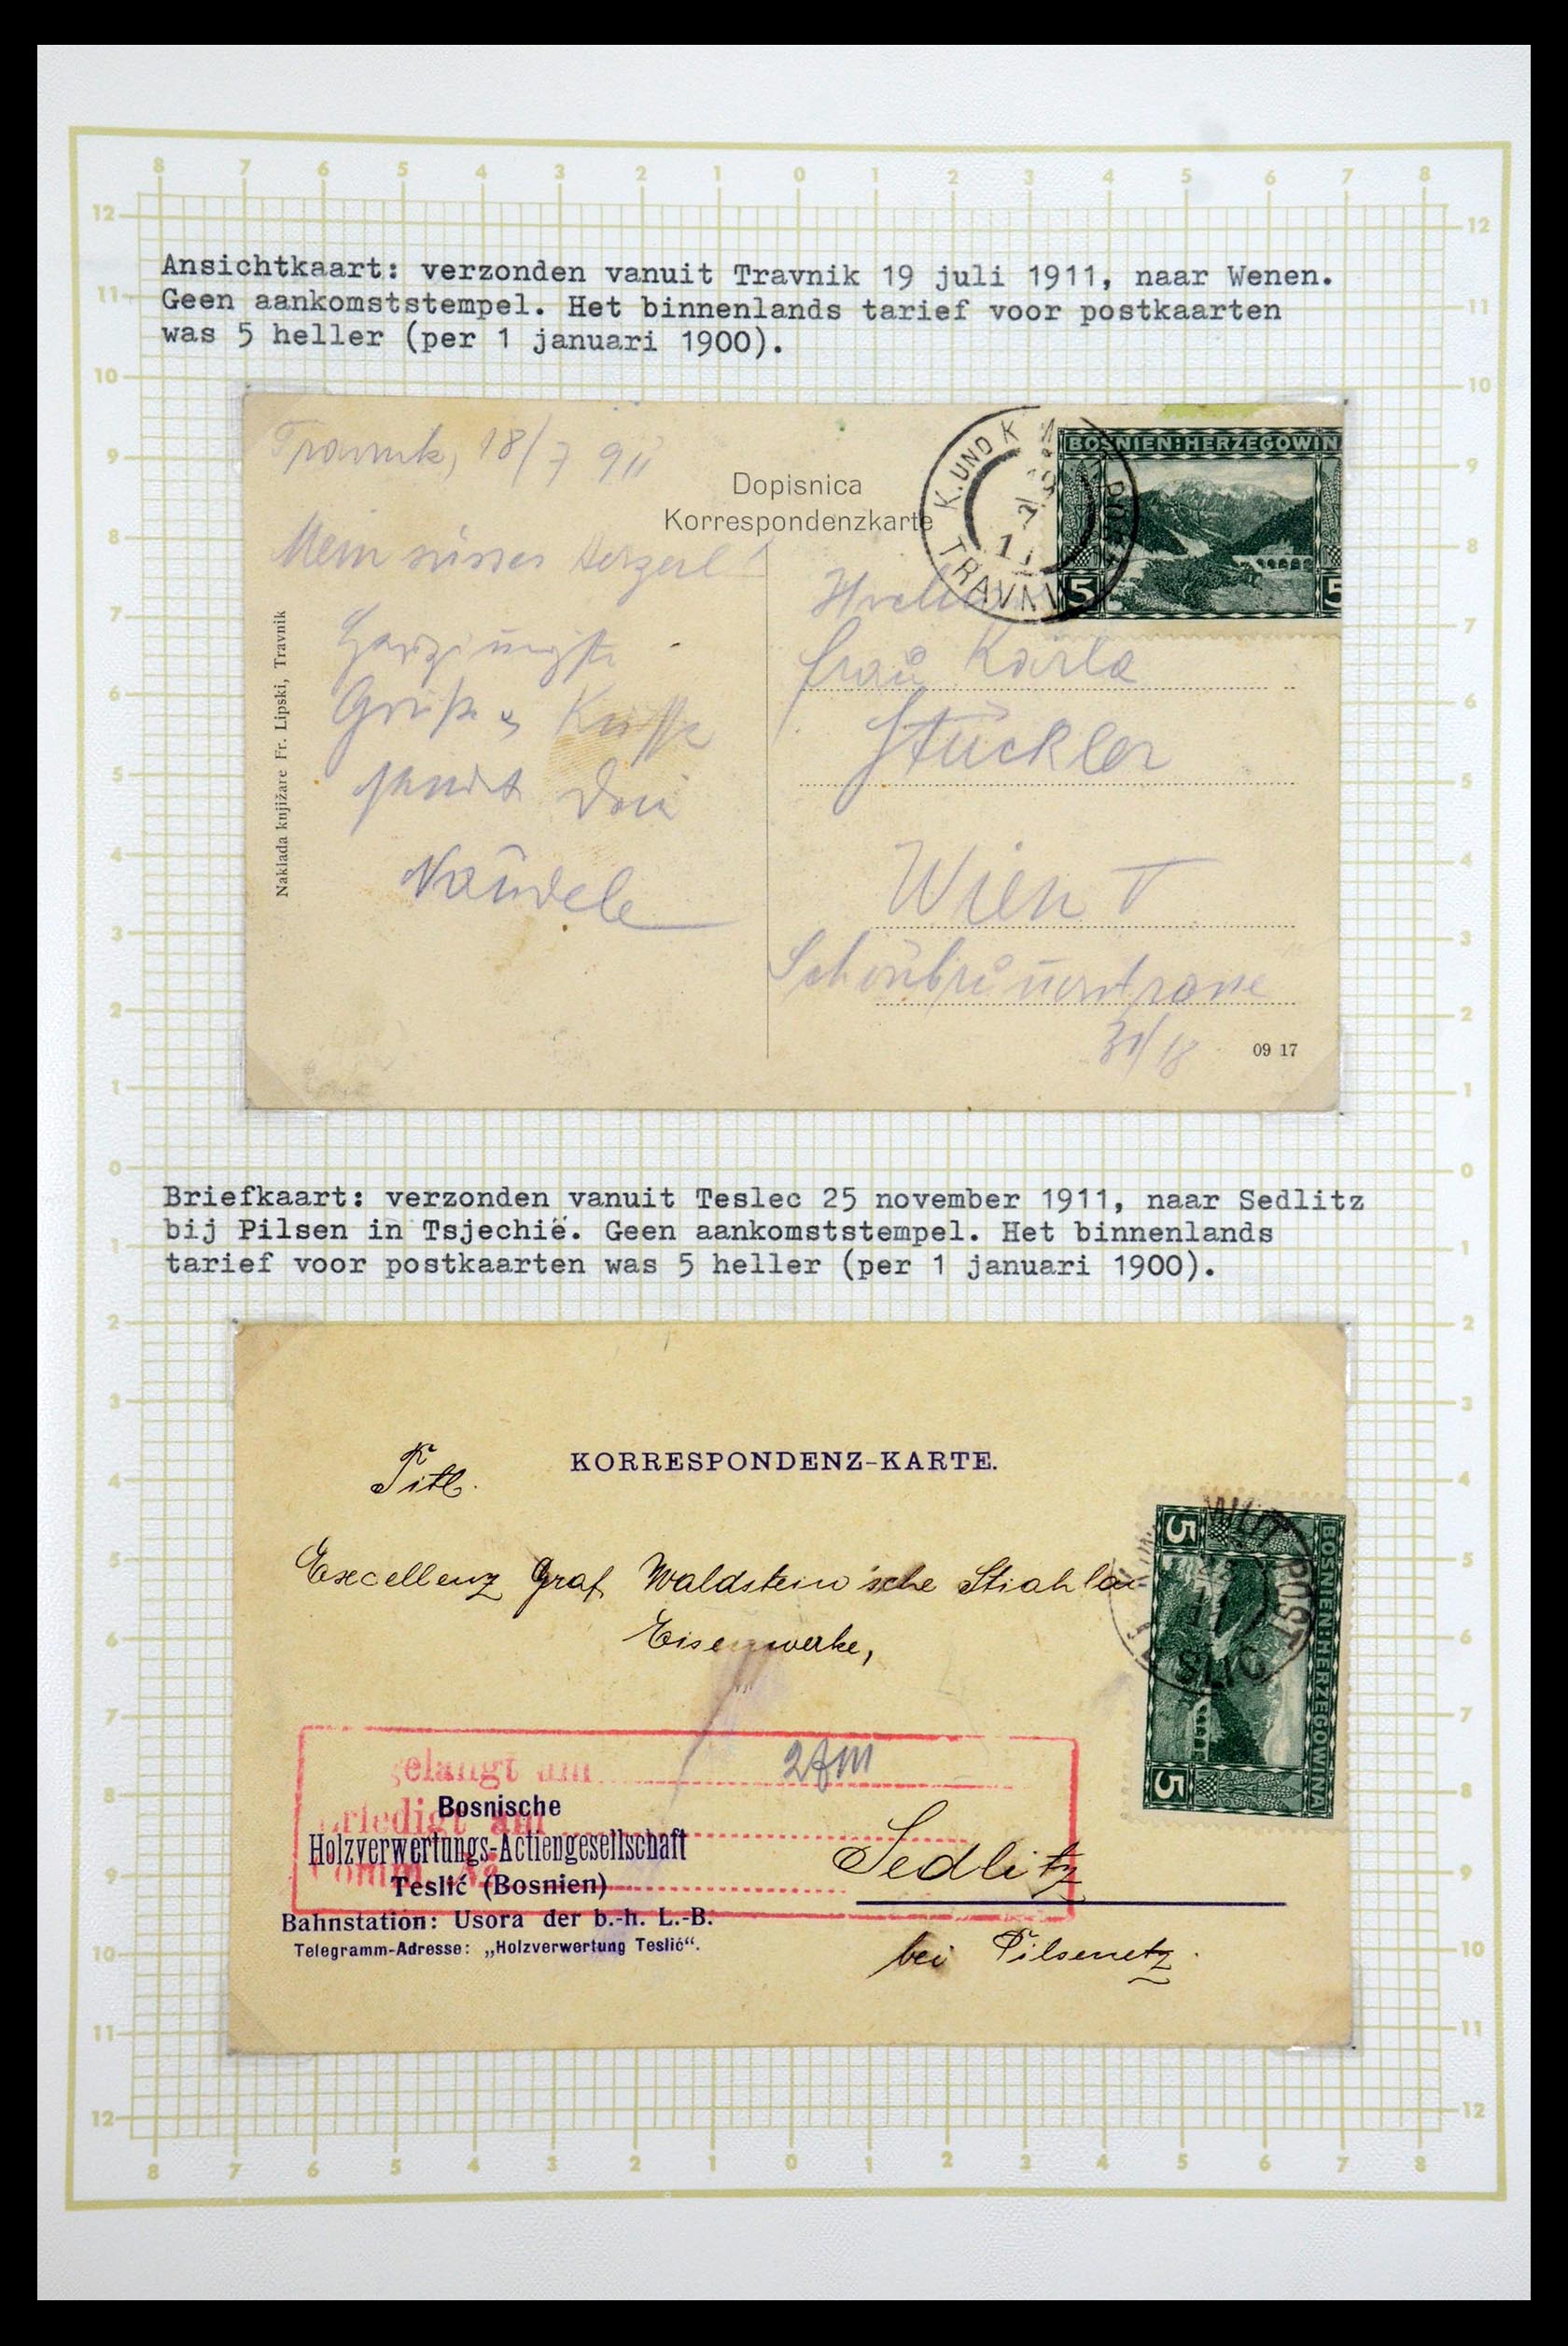 Ansichtkaart: verzonden vanuit Travnik 19 juli 1911, naar Wenen.
Geen aankomststempel. Het binnenlands tarief voor postkaarten
was 5 heller (per 1 januari 1900).
Travnik, 18/7 911
Dopisnica
Korrespondenzkarte
K. UND K.
TRAVNIK
BOSNIEN-HERZEGOWIN
5
5
Mein süsses Herzerl!
Grüße & Küsse
sendet Dein
Naklada knjižare Fr. Lipski, Travnik
Frau Karla
Stückler
Wien
Schönbrunnerstrasse
09 17
Briefkaart: verzonden vanuit Teslec 25 november 1911, naar Sedlitz
bij Pilsen in Tsjechië. Geen aankomststempel. Het binnenlands
tarief voor postkaarten was 5 heller (per 1 januari 1900).
KORRESPONDENZ-KARTE.
Titl.
Excellenz Graf Waldstein'sche
Eisenwerke,
BOSNIEN-HERZEGOWINA
5
5
MILIT POST
gelangt am
erledigt am
Bosnische
Holzverwertungs-Actiengesellschaft
Teslić (Bosnien)
Bahnstation: Usora der b.-h. L.-B.
Telegramm-Adresse: „Holzverwertung Teslić“.
Sedlitz
bei Pilsenetz.